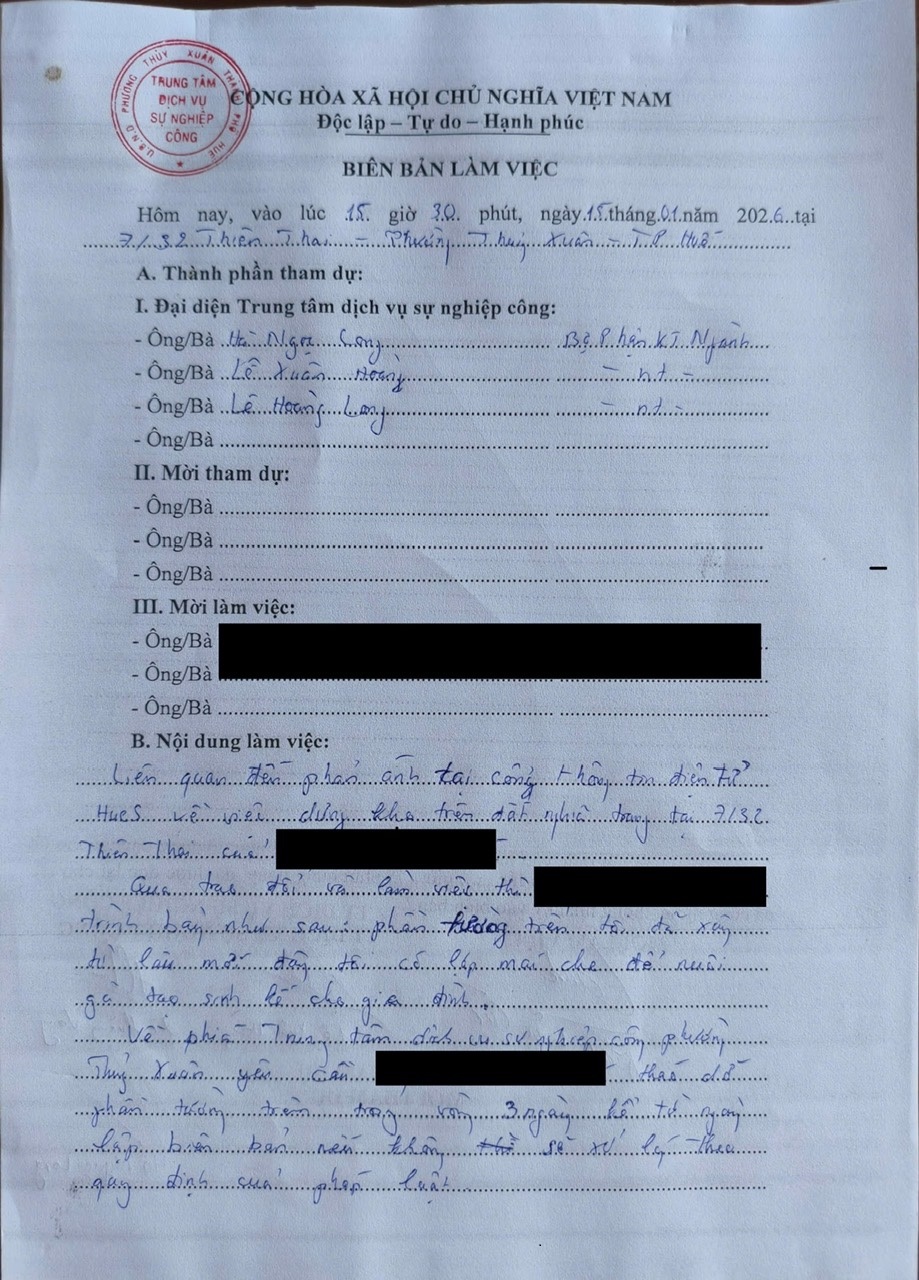 U.B.N.D PHƯỜNG THỦY XUÂN THÀNH PHỐ HUẾ
TRUNG TÂM
DỊCH VỤ
SỰ NGHIỆP
CÔNG
CỘNG HÒA XÃ HỘI CHỦ NGHĨA VIỆT NAM
Độc lập – Tự do – Hạnh phúc
BIÊN BẢN LÀM VIỆC
Hôm nay, vào lúc 15 giờ 30 phút, ngày 15 tháng 01 năm 2026 tại
7/32 Thiên Thai – Phường Thuỷ Xuân – T.P Huế
A. Thành phần tham dự:
I. Đại diện Trung tâm dịch vụ sự nghiệp công:
- Ông/Bà Hà Ngọc Bộ Phận KT. Ngành
- Ông/Bà Lê Xuân Hoàng – n.t –
- Ông/Bà Lê Hoàng Long – n.t –
- Ông/Bà
II. Mời tham dự:
- Ông/Bà
- Ông/Bà
- Ông/Bà
III. Mời làm việc:
- Ông/Bà
- Ông/Bà
- Ông/Bà
B. Nội dung làm việc:
Liên quan đến phản ánh tại cổng thông tin điện tử
HueS về việc dựng trên đất nghĩa trang tại 7/32
Thiên Thai của
Qua trao đổi và làm việc thì
trình bày như sau: phần tường trên tôi đã xây
từ lâu mới đây tôi có lắp mái che để nuôi
gà tạo sinh kế cho gia đình.
Về phía Trung tâm dịch vụ sự nghiệp công phường
Thuỷ Xuân yêu cầu tháo dỡ
phần tường trên trong vòng 3 ngày kể từ ngày
lập biên bản nếu không sẽ xử lý theo
quy định của pháp luật.